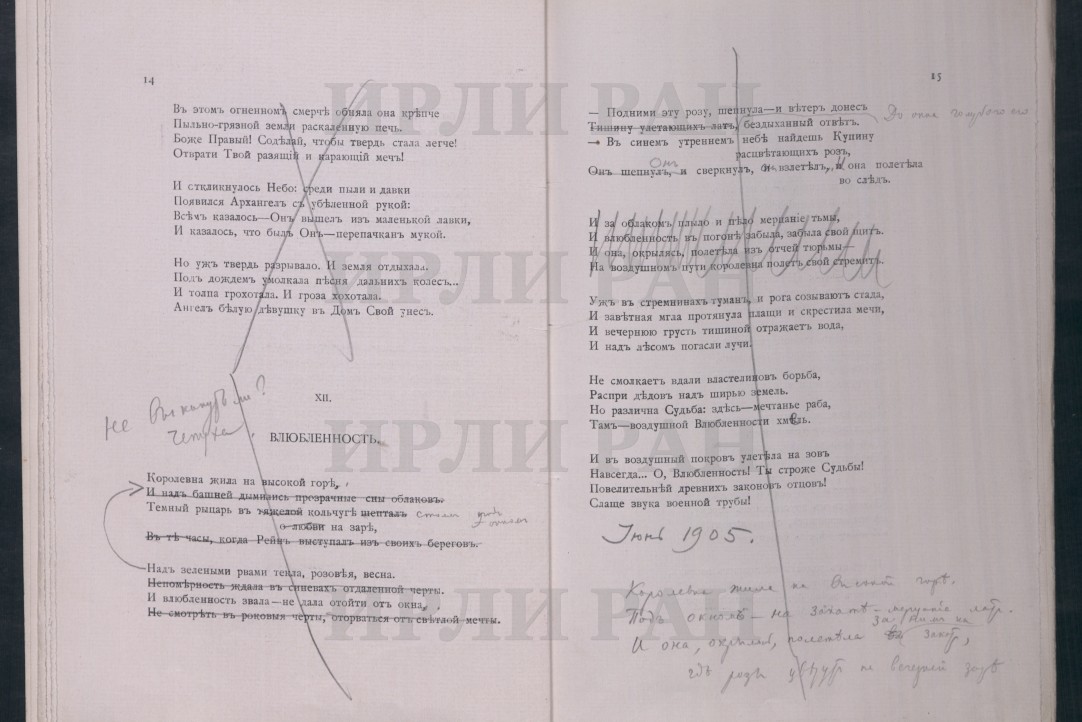 14
Въ этомъ огненномъ смерчѣ обняла она крѣпче
Пыльно-грязной земли раскаленную печь.
Боже Правый! Содѣлай, чтобы твердь стала легче!
Отврати Твой разящій и карающій мечъ!
И откликнулось Небо: среди пыли и давки
Появился Архангелъ съ убѣленной рукой:
Всѣмъ казалось—Онъ вышелъ изъ маленькой лавки,
И казалось, что былъ Онъ—перепачканъ мукой.
Но ужъ твердь разрывало. И земля отдыхала.
Подъ дождемъ умолкала пѣсня дальнихъ колесъ...
И толпа грохотала. И гроза хохотала.
Ангелъ бѣлую дѣвушку въ Домъ Свой унесъ.
не выкинуть ли?
чепуха.
XII.
ВЛЮБЛЕННОСТЬ.
Королевна жила на высокой горѣ,
И надъ башней дымились прозрачные сны облаковъ.
Темный рыцарь въ тяжелой кольчугѣ шепталъ стоялъ подъ окномъ
о любви на зарѣ,
Въ тѣ часы, когда Рейнъ выступалъ изъ своихъ береговъ.
Надъ зелеными рвами текла, розовѣя, весна.
Непомѣрность ждала въ синевахъ отдаленной черты.
И влюбленность звала—не дала отойти отъ окна,
Не смотрѣть въ роковыя черты, оторваться отъ свѣтлой мечты.
15
— Подними эту розу, шепнула—и вѣтеръ донесъ До окна голубого
Тишину улетающихъ латъ, бездыханный отвѣтъ.
— Въ синемъ утреннемъ небѣ найдешь Купину
расцвѣтающихъ розъ,
Онъ
Онъ шепнулъ, и сверкнулъ, и взлетѣлъ, и она полетѣла
во слѣдъ.
И за облакомъ плыло и пѣло мерцаніе тьмы,
И влюбленность въ погонѣ забыла, забыла свой щитъ.
И она, окрылясь, полетѣла изъ отчей тюрьмы—
На воздушномъ пути королевна полетъ свой стремитъ.
Ужъ въ стремнинахъ туманъ, и рога созываютъ стада,
И завѣтная мгла протянула плащи и скрестила мечи,
И вечернюю грусть тишиной отражаетъ вода,
И надъ лѣсомъ погасли лучи.
Не смолкаетъ вдали властелиновъ борьба,
Распри дѣдовъ надъ ширью земель.
Но различна Судьба: здѣсь—мечтанье раба,
Тамъ—воздушной Влюбленности хмель.
И въ воздушный покровъ улетѣла на зовъ
Навсегда... О, Влюбленность! Ты строже Судьбы!
Повелительнѣй древнихъ законовъ отцовъ!
Слаще звука военной трубы!
Іюнь 1905.
Королевна жила на высокой горѣ.
Подъ окномъ — на закатѣ — мерцанie латъ.
за нимъ на
И она, окрылясь, полетѣла въ закатъ,
гдѣ розы цвѣтутъ на вечерней зарѣ
ИРЛИ РАН
ИРЛИ РАН
ИРЛИ РАН
ИРЛИ РАН